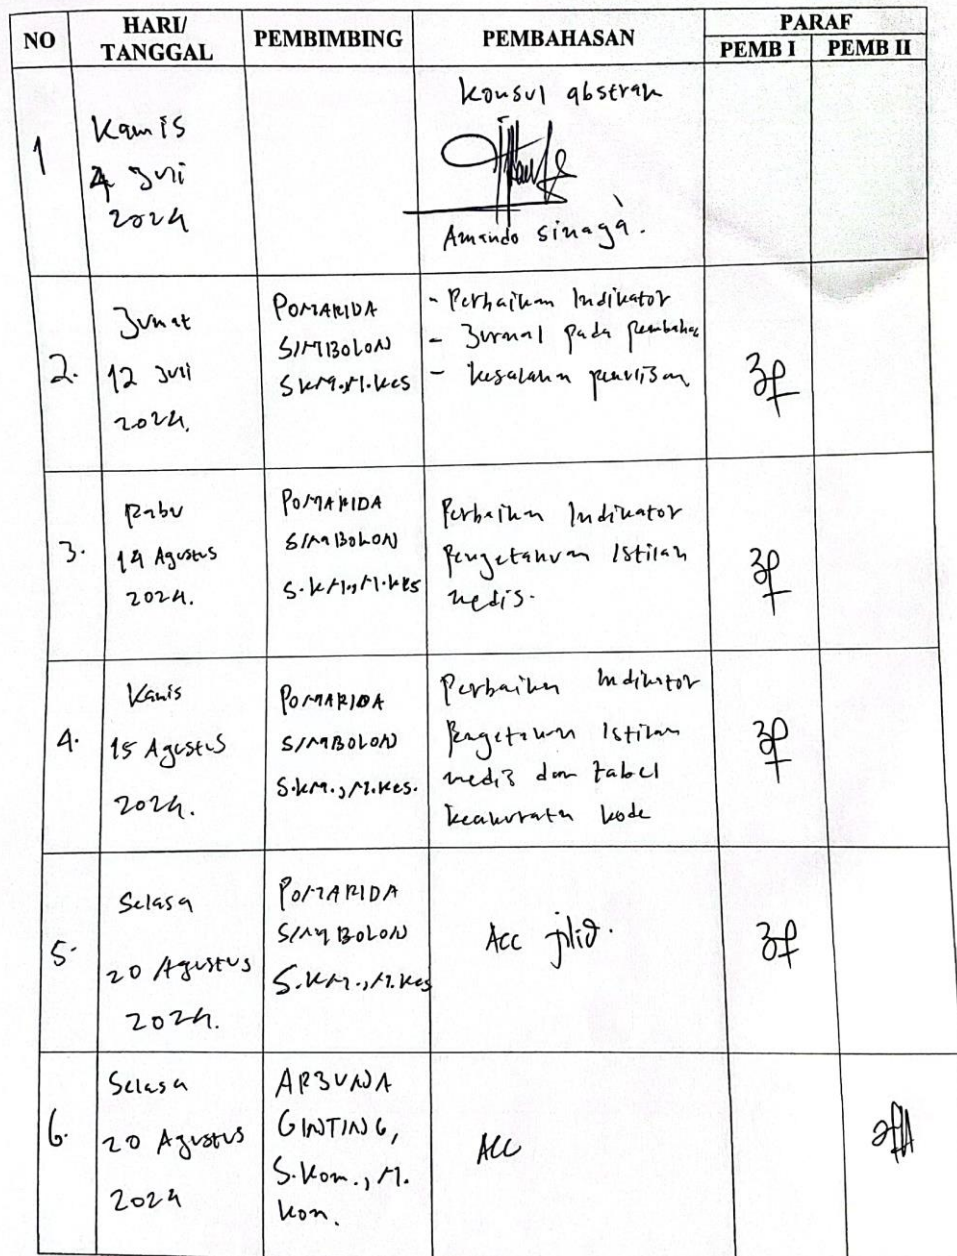 NO
HARI/
TANGGAL
PEMBIMBING
PEMBAHASAN
PARAF
PEMB I
PEMB II
1
Kamis
4 Juli
2024
Konsul abstrak
Amando sinaga.
2.
Jumat
12 Juli
2024.
POMARIDA
SIMBOLON
SKM.,M.Kes
- Perbaikan Indikator
- Jurnal pada pembahas
- kesalahan penulisan
3.
Rabu
14 Agustus
2024.
POMARIDA
SIMBOLON
S.KM.,M.Kes
Perbaikan Indikator
Pengetahuan Istilah
medis.
4.
Kamis
15 Agustus
2024.
POMARIDA
SIMBOLON
S.KM.,M.Kes.
Perbaikan Indikator
Pengetahuan Istilah
medis dan tabel
keakuratan kode
5.
Selasa
20 Agustus
2024.
POMARIDA
SIMBOLON
S.KM.,M.Kes
Acc jilid.
6.
Selasa
20 Agustus
2024
ARJUNA
GINTING,
S.Kom., M.
Kom.
Acc